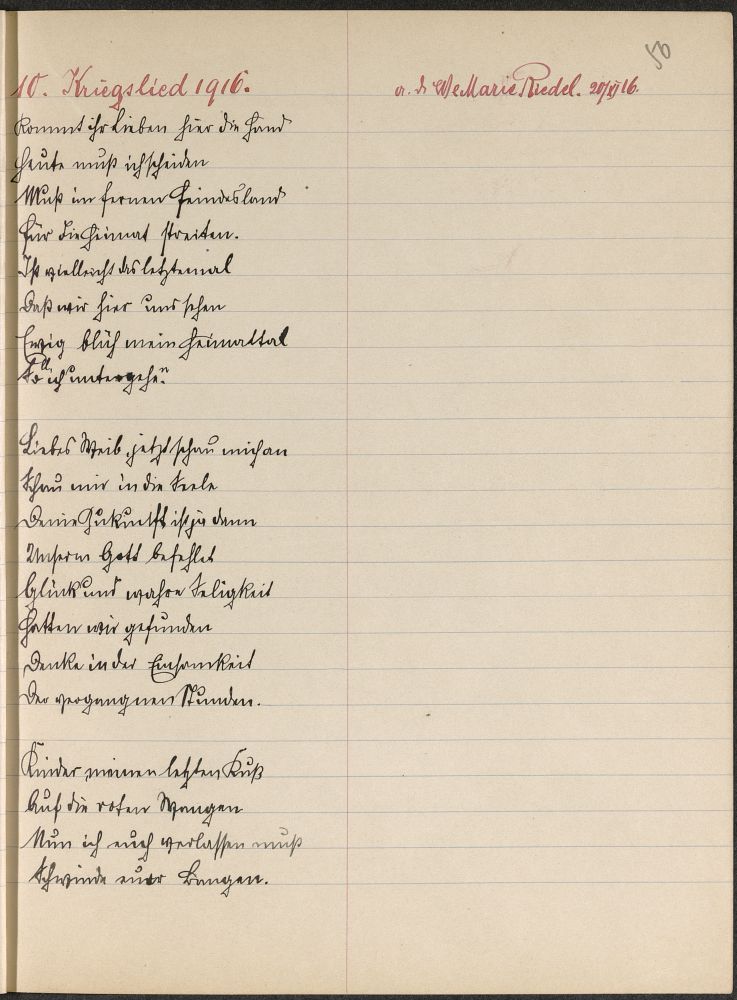 50
10. Kriegslied 1916.
a. d. We Marie Riedel. 20/XI 16.
Kommt ihr Lieben hier die Hand
Heute muß ich scheiden
Muß im fernen Feindesland
Für die Heimat streiten.
Ist vielleicht das letztemal
Daß wir hier uns sehen
Ewig blüh mein Heimattal
Soll ich untergehn.
Liebes Weib, jetzt schau mich an
Schau mir in die Seele
Deine Zukunft ist ja dann
Unserm Gott befehlet
Glück und wahre Seligkeit
Hatten wir gefunden
Denke in der Einsamkeit
Der vergangnen Stunden.
Kinder meinen letzten Kuß
Auf die roten Wangen
Nun ich euch verlassen muß
Schwinde euer Bangen.